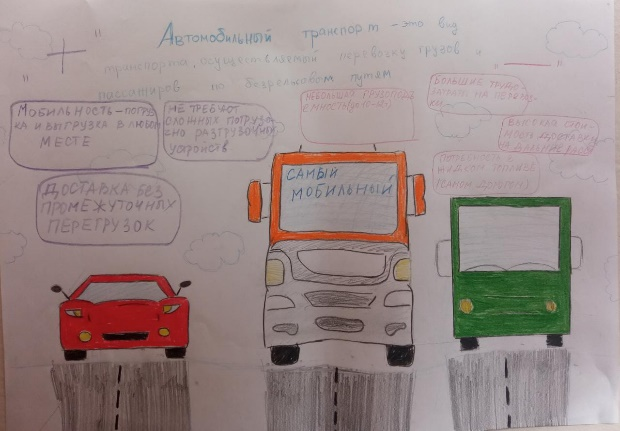 Автомобильный транспорт - это вид
транспорта, осуществляемый перевозку грузов и
пассажиров по безрельсовым путям
" + "
" — "
Мобильность - погруз
ка и выгрузка в любом
месте
Не требует
сложных погрузо
чно разгрузочных
устройств
Доставка без
промежуточных
перегрузок
Небольшая грузопод
Самый
мобильный
Большие трудо
затраты на перевоз
ки
Высокая
Потребность в
жидком топливе
(самом дорогом)